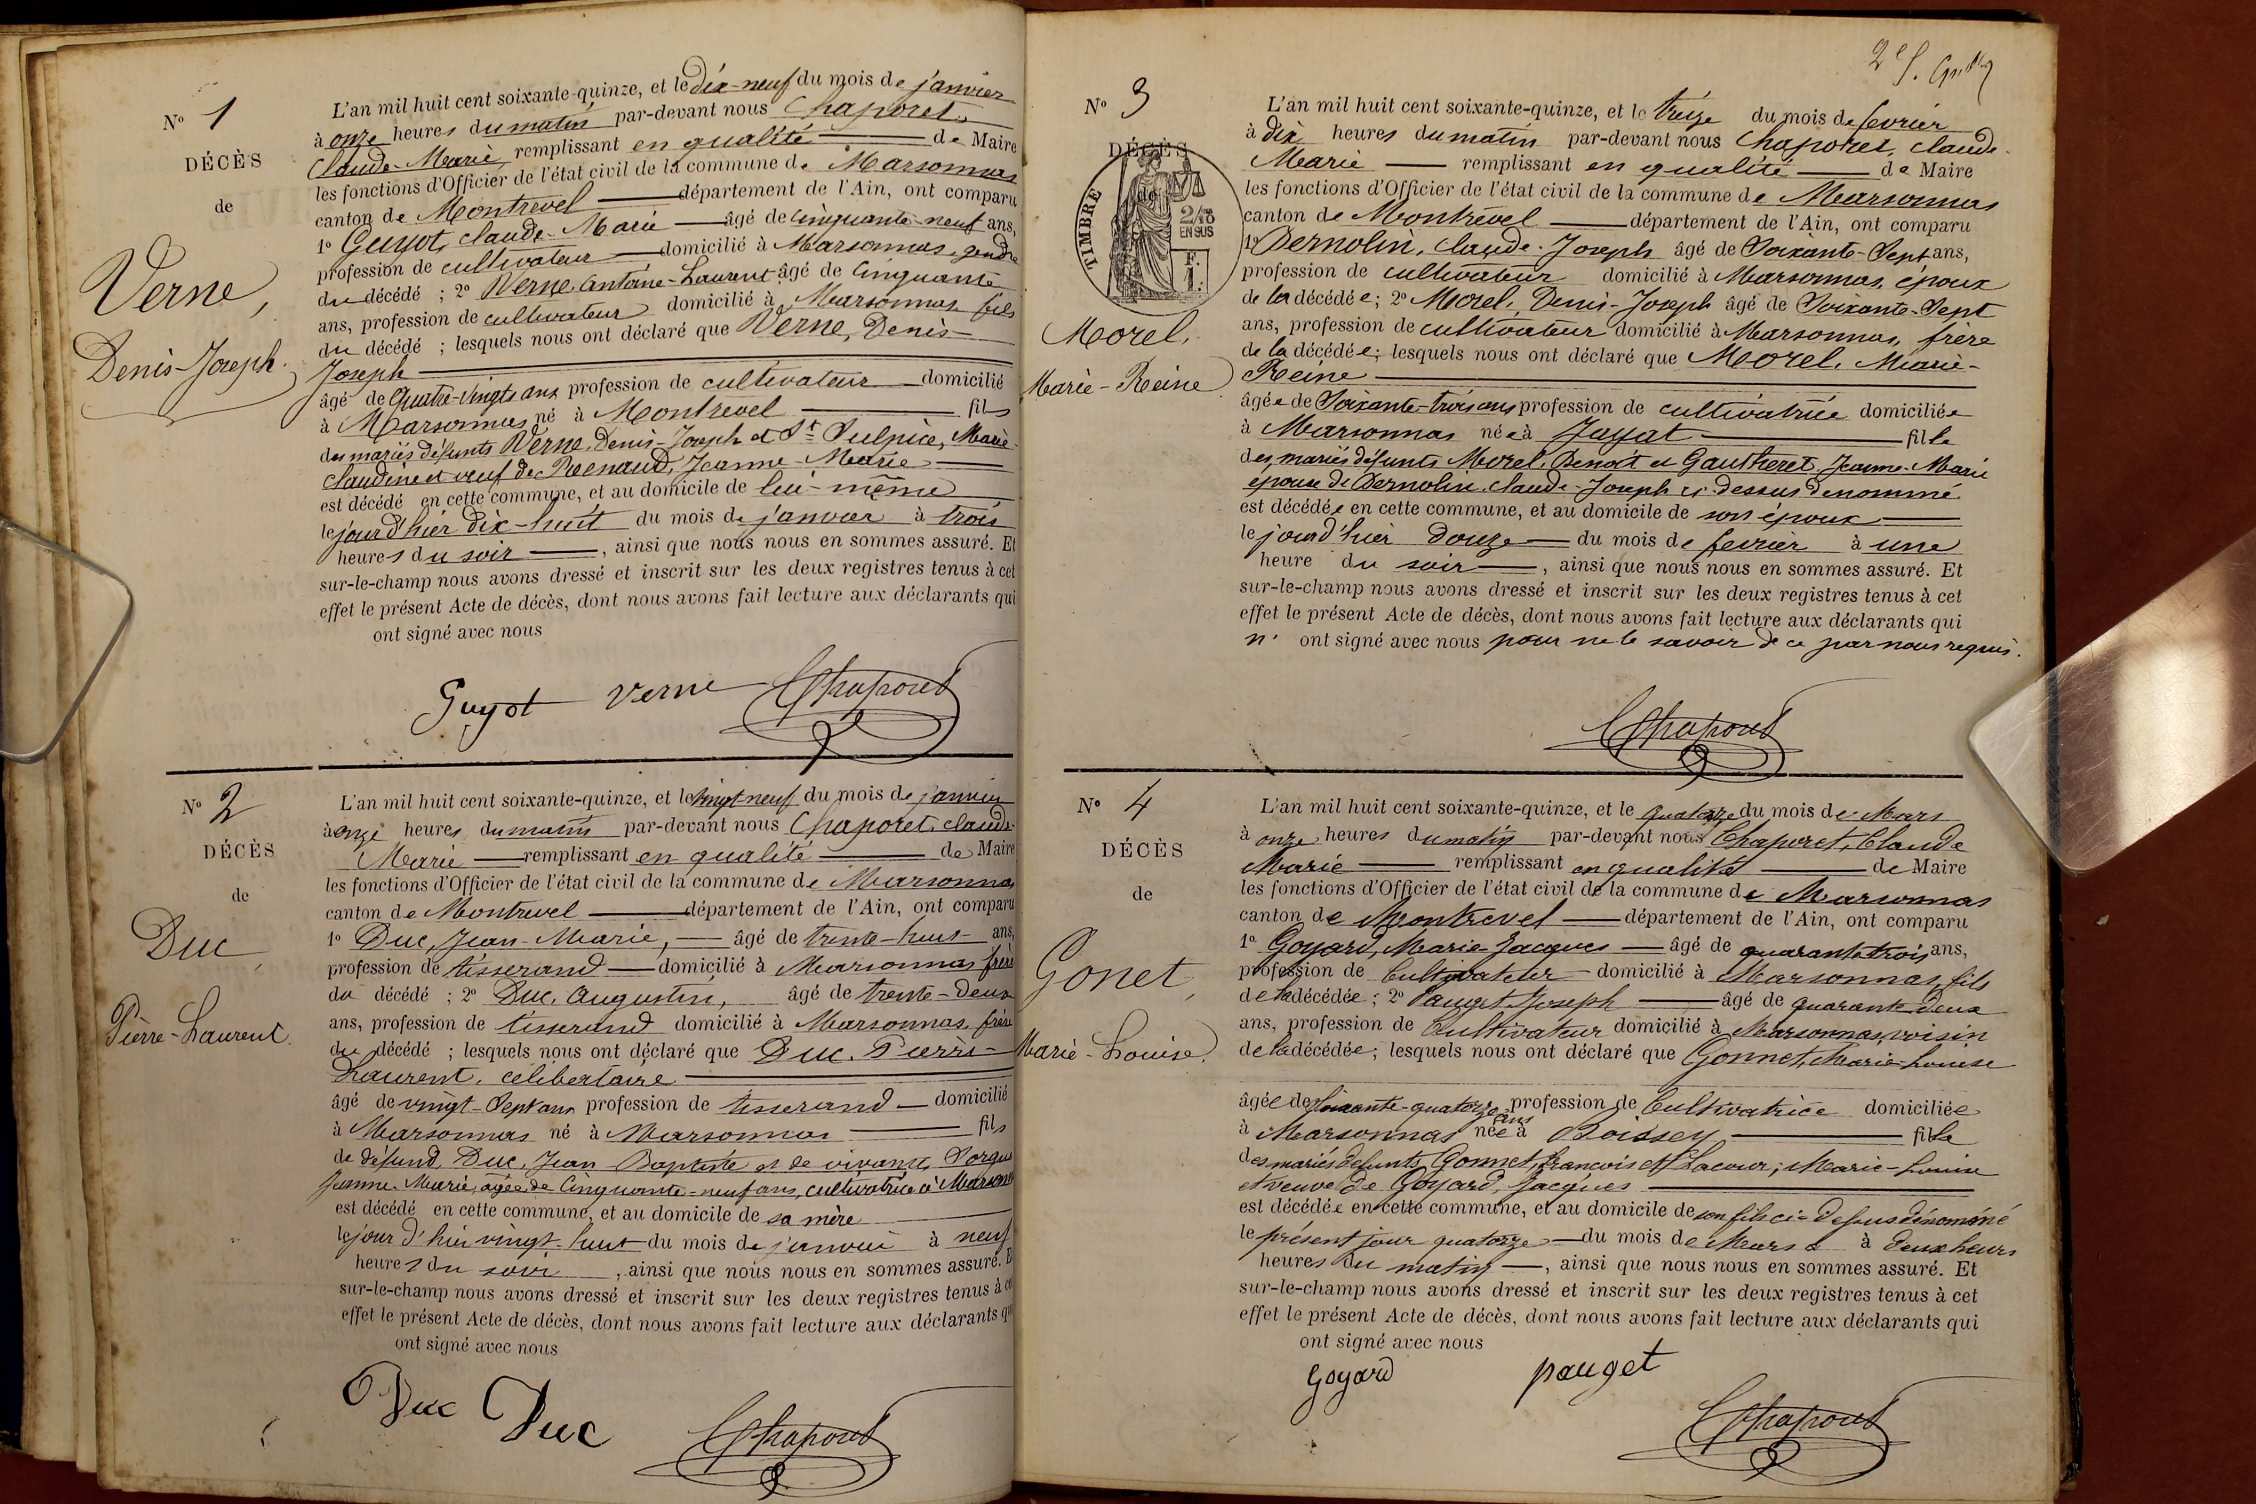 N° 1
DÉCÈS
de
Verne,
Denis-Joseph.
L'an mil huit cent soixante-quinze, et le dix-neuf du mois de janvier
à onze heures du matin par-devant nous Chaporet,
Claude-Marie remplissant en qualité de Maire
les fonctions d'Officier de l'état civil de la commune de Marsonnas
canton de Montrevel département de l'Ain, ont comparu
1° Guyot, claude-Marie âgé de cinquante-neuf ans,
profession de cultivateur domicilié à Marsonnas, gendre
du décédé ; 2° Verne, Antoine-Laurent âgé de Cinquante
ans, profession de cultivateur domicilié à Marsonnas fils
du décédé ; lesquels nous ont déclaré que Verne, Denis-
Joseph
âgé de Quatre-vingts ans profession de cultivateur domicilié
à Marsonnas né à Montrevel fils
des mariés défunts Verne, Denis-Joseph et St Sulpice, Marie-
Claudine et veuf de Renaud, Jeanne-Marie
est décédé en cette commune, et au domicile de lui-même
le jour d'hier dix-huit du mois de janvier à trois
heures du soir , ainsi que nous nous en sommes assuré. Et
sur-le-champ nous avons dressé et inscrit sur les deux registres tenus à cet
effet le présent Acte de décès, dont nous avons fait lecture aux déclarants qui
ont signé avec nous
Guyot Verne Chaporet
N° 2
DÉCÈS
de
Duc,
Pierre-Laurent.
L'an mil huit cent soixante-quinze, et le vingt-neuf du mois de janvier
à onze heures du matin par-devant nous Chaporet, claude-
Marie remplissant en qualité de Maire
les fonctions d'Officier de l'état civil de la commune de Marsonnas
canton de Montrevel département de l'Ain, ont comparu
1° Duc, Jean-Marie, âgé de trente-huit ans,
profession de tisserand domicilié à Marsonnas frère
du décédé ; 2° Duc, Augustin, âgé de trente-deux
ans, profession de tisserand domicilié à Marsonnas, frère
du décédé ; lesquels nous ont déclaré que Duc, Pierre-
Laurent, celibertaire
âgé de vingt-Sept ans profession de tisserand domicilié
à Marsonnas né à Marsonnas fils
de défund Duc, Jean Baptiste et de vivante Porgue
Jeanne-Marie, agée de Cinquante-neuf ans, cultivatrice à Marsonnas
est décédé en cette commune, et au domicile de sa mère
le jour d'hier vingt-huit du mois de janvier à neuf
heures du soir , ainsi que nous nous en sommes assuré. E
sur-le-champ nous avons dressé et inscrit sur les deux registres tenus à ce
effet le présent Acte de décès, dont nous avons fait lecture aux déclarants qu
ont signé avec nous
Duc Duc Chaporet
2e f.
N° 3
DÉCÈS
de
TIMBRE
2/10
EN SUS
F.
1.
Morel,
Marie-Reine
L'an mil huit cent soixante-quinze, et le treize du mois de fevrier
à dix heures du matin par-devant nous Chaporet, claude-
Marie remplissant en qualité de Maire
les fonctions d'Officier de l'état civil de la commune de Marsonnas
canton de Montrevel département de l'Ain, ont comparu
1° Pernolin, claude-Joseph âgé de Soixante-Sept ans,
profession de cultivateur domicilié à Marsonnas, époux
de la décédée; 2° Morel, Denis-Joseph âgé de Soixante-Sept
ans, profession de cultivateur domicilié à Marsonnas, frère
de la décédée; lesquels nous ont déclaré que Morel, Marie-
Reine
âgée de Soixante-trois ans profession de cultivatrice domiciliée
à Marsonnas née à Jayat fille
des mariés défunts Morel, Benoit et Gautheret Jeanne-Marie
épouse de Pernolin claude-Joseph ci-dessus denommé
est décédée en cette commune, et au domicile de son époux
le jour d'hier douze du mois de fevrier à une
heure du soir , ainsi que nous nous en sommes assuré. Et
sur-le-champ nous avons dressé et inscrit sur les deux registres tenus à cet
effet le présent Acte de décès, dont nous avons fait lecture aux déclarants qui
n' ont signé avec nous pour ne le savoir de ce par nous requis.
Chaporet
N° 4
DÉCÈS
de
Gonet,
Marie-Louise.
L'an mil huit cent soixante-quinze, et le quatorze du mois de Mars
à onze heures du matin par-devant nous Chaporet, Claude
Marie remplissant en qualité de Maire
les fonctions d'Officier de l'état civil de la commune de Marsonnas
canton de Montrevel département de l'Ain, ont comparu
1° Goyard, Marie-Jacques âgé de quarante trois ans,
profession de Cultivateur domicilié à Marsonnas, fils
de la décédée; 2° Pauget Joseph âgé de quarante-deux
ans, profession de Cultivateur domicilié à Marsonnas, voisin
de la décédée; lesquels nous ont déclaré que Gonnet, Marie-Louise
âgée de soixante-quatorze ans profession de Cultivatrice domiciliée
à Marsonnas née à Boissey fille
des mariés défunts Gonnet, francois et Lacour, Marie-Louise
et veuve de Goyard, Jacques
est décédée en cette commune, et au domicile de son fils ci-dessus dénommé
le présent jour quatorze du mois de Mars à deux heurs
heures du matin , ainsi que nous nous en sommes assuré. Et
sur-le-champ nous avons dressé et inscrit sur les deux registres tenus à cet
effet le présent Acte de décès, dont nous avons fait lecture aux déclarants qui
ont signé avec nous
Goyard pauget
Chaporet